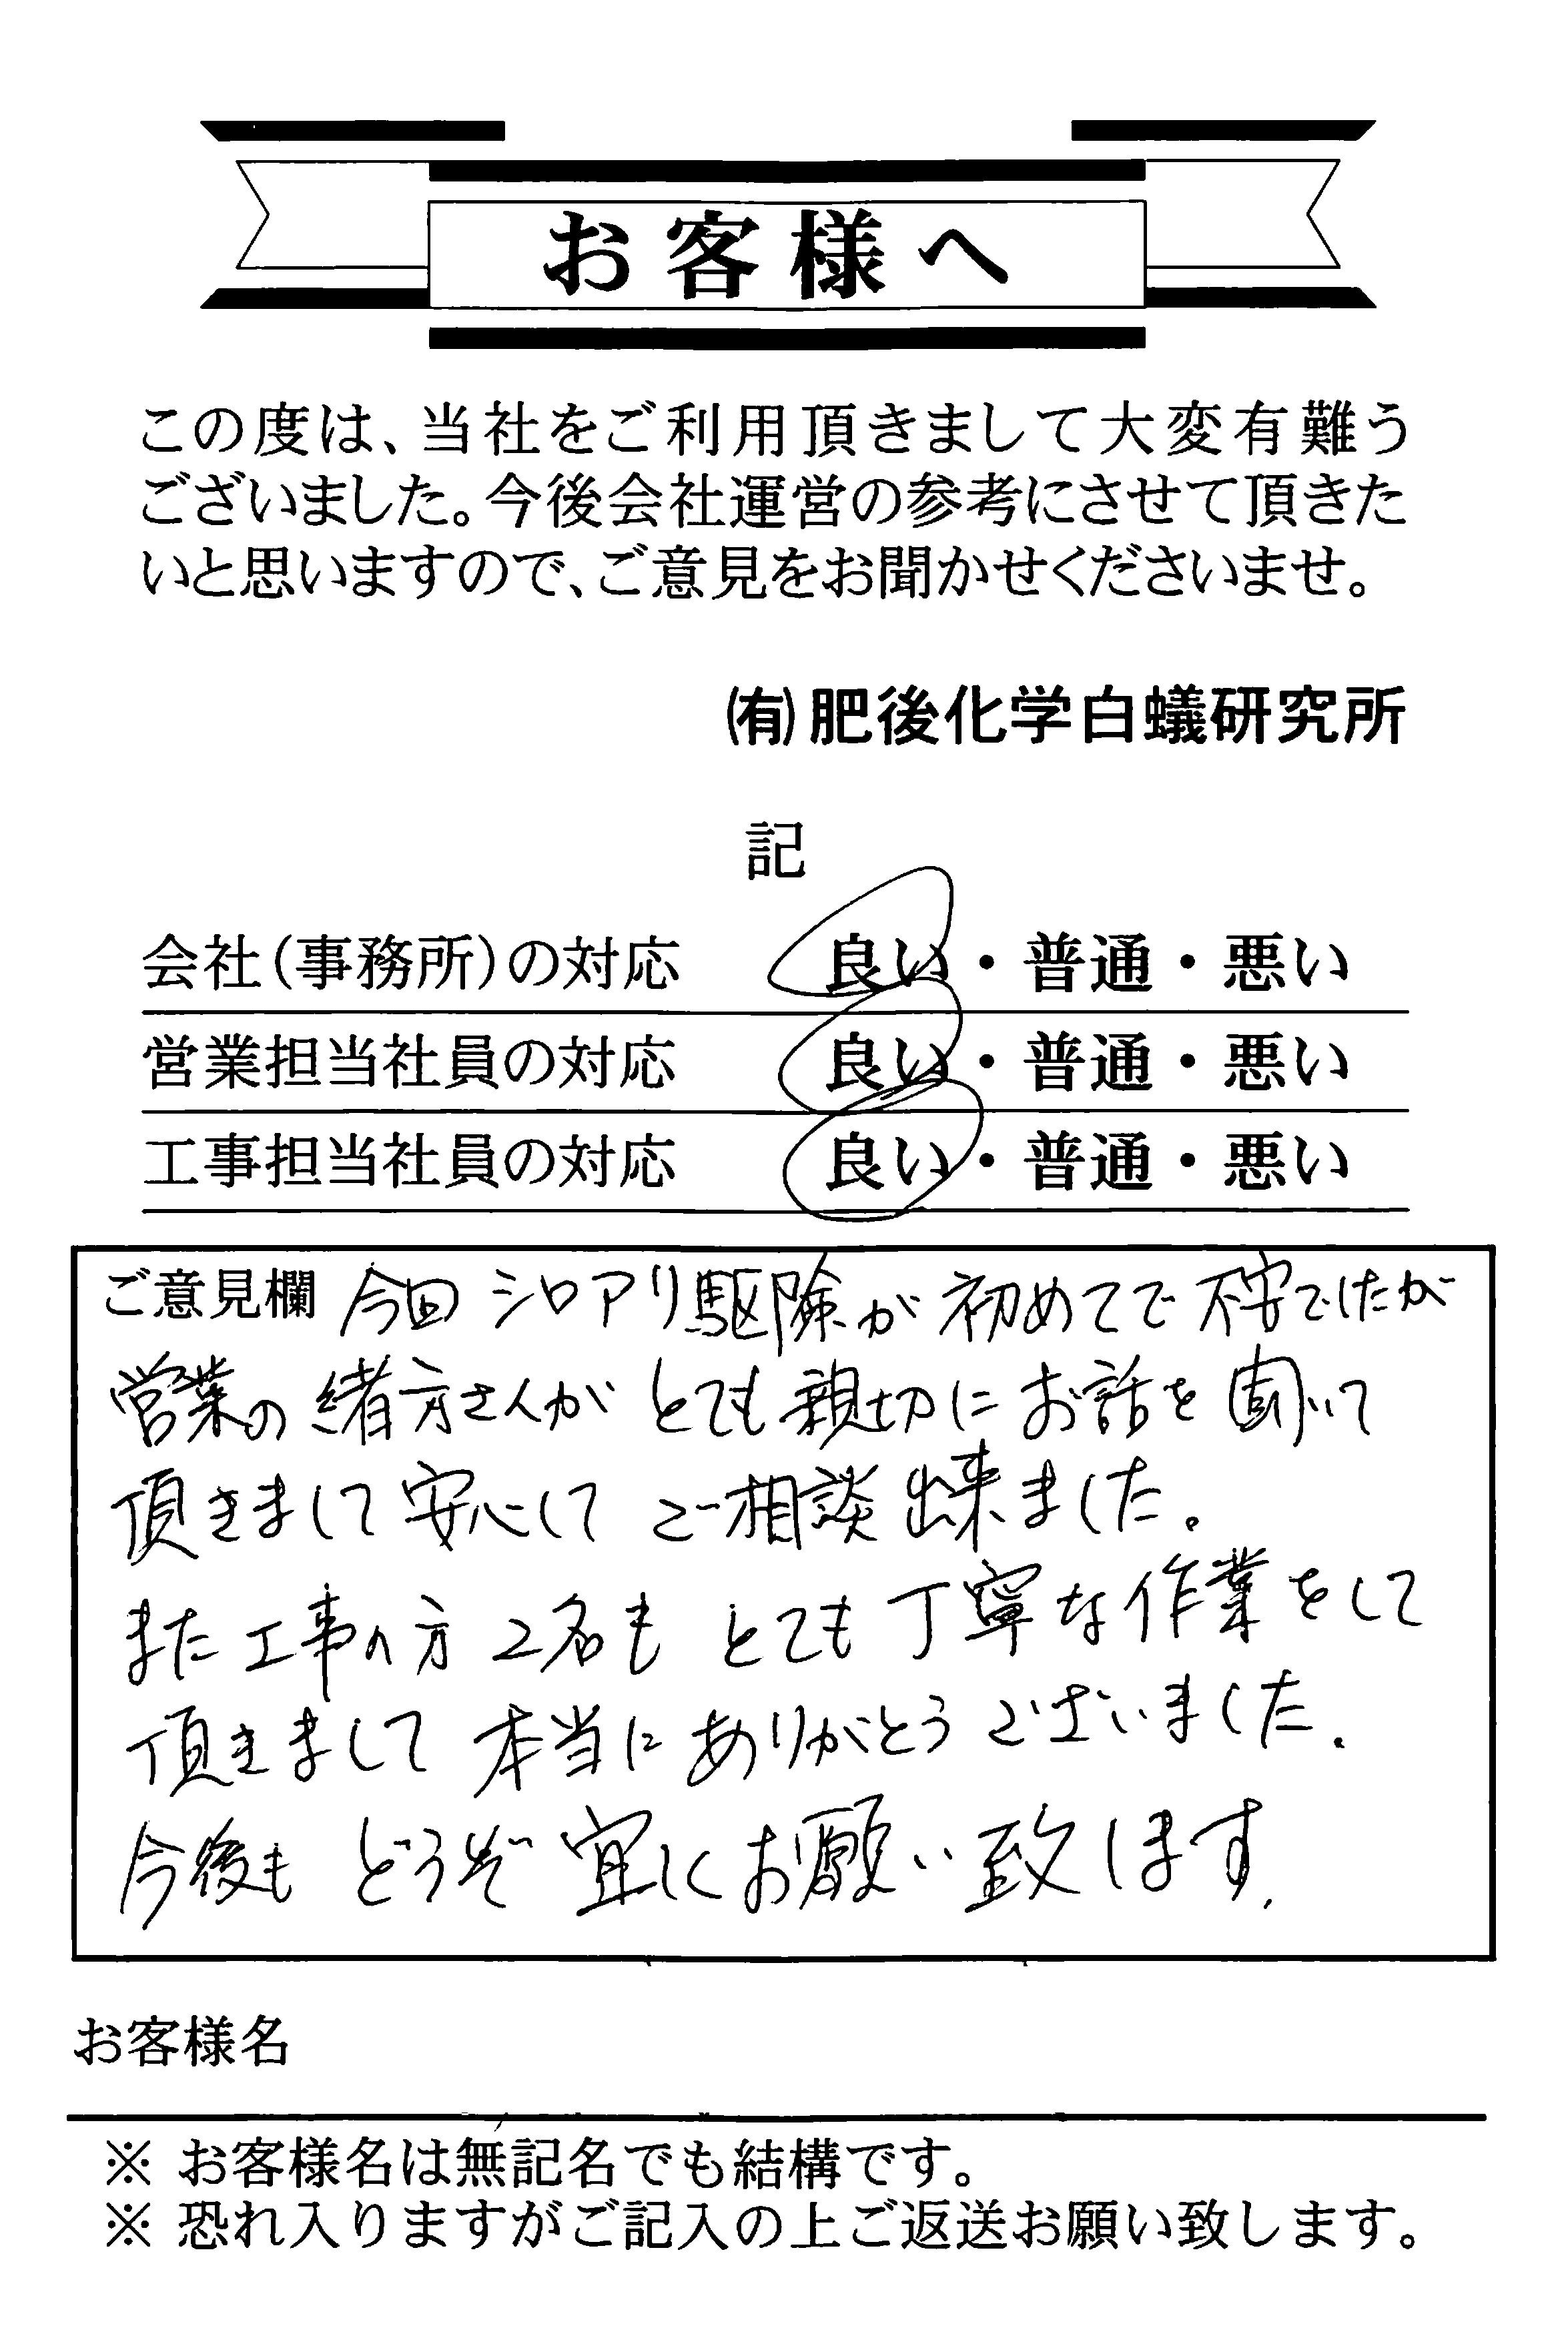 お客様へ
この度は、当社をご利用頂きまして大変有難う
ございました。今後会社運営の参考にさせて頂きた
いと思いますので、ご意見をお聞かせくださいませ。
㈲肥後化学白蟻研究所
記
会社(事務所)の対応 良い・普通・悪い
営業担当社員の対応 良い・普通・悪い
工事担当社員の対応 良い・普通・悪い
ご意見欄 今回シロアリ駆除が初めてで不安でしたが
営業の緒方さんがとても親切にお話を聞いて
頂きまして安心してご相談出来ました。
また工事の方2名もとても丁寧な作業をして
頂きまして本当にありがとうございました。
今後もどうぞ宜しくお願い致します。
お客様名
※ お客様名は無記名でも結構です。
※ 恐れ入りますがご記入の上ご返送お願い致します。